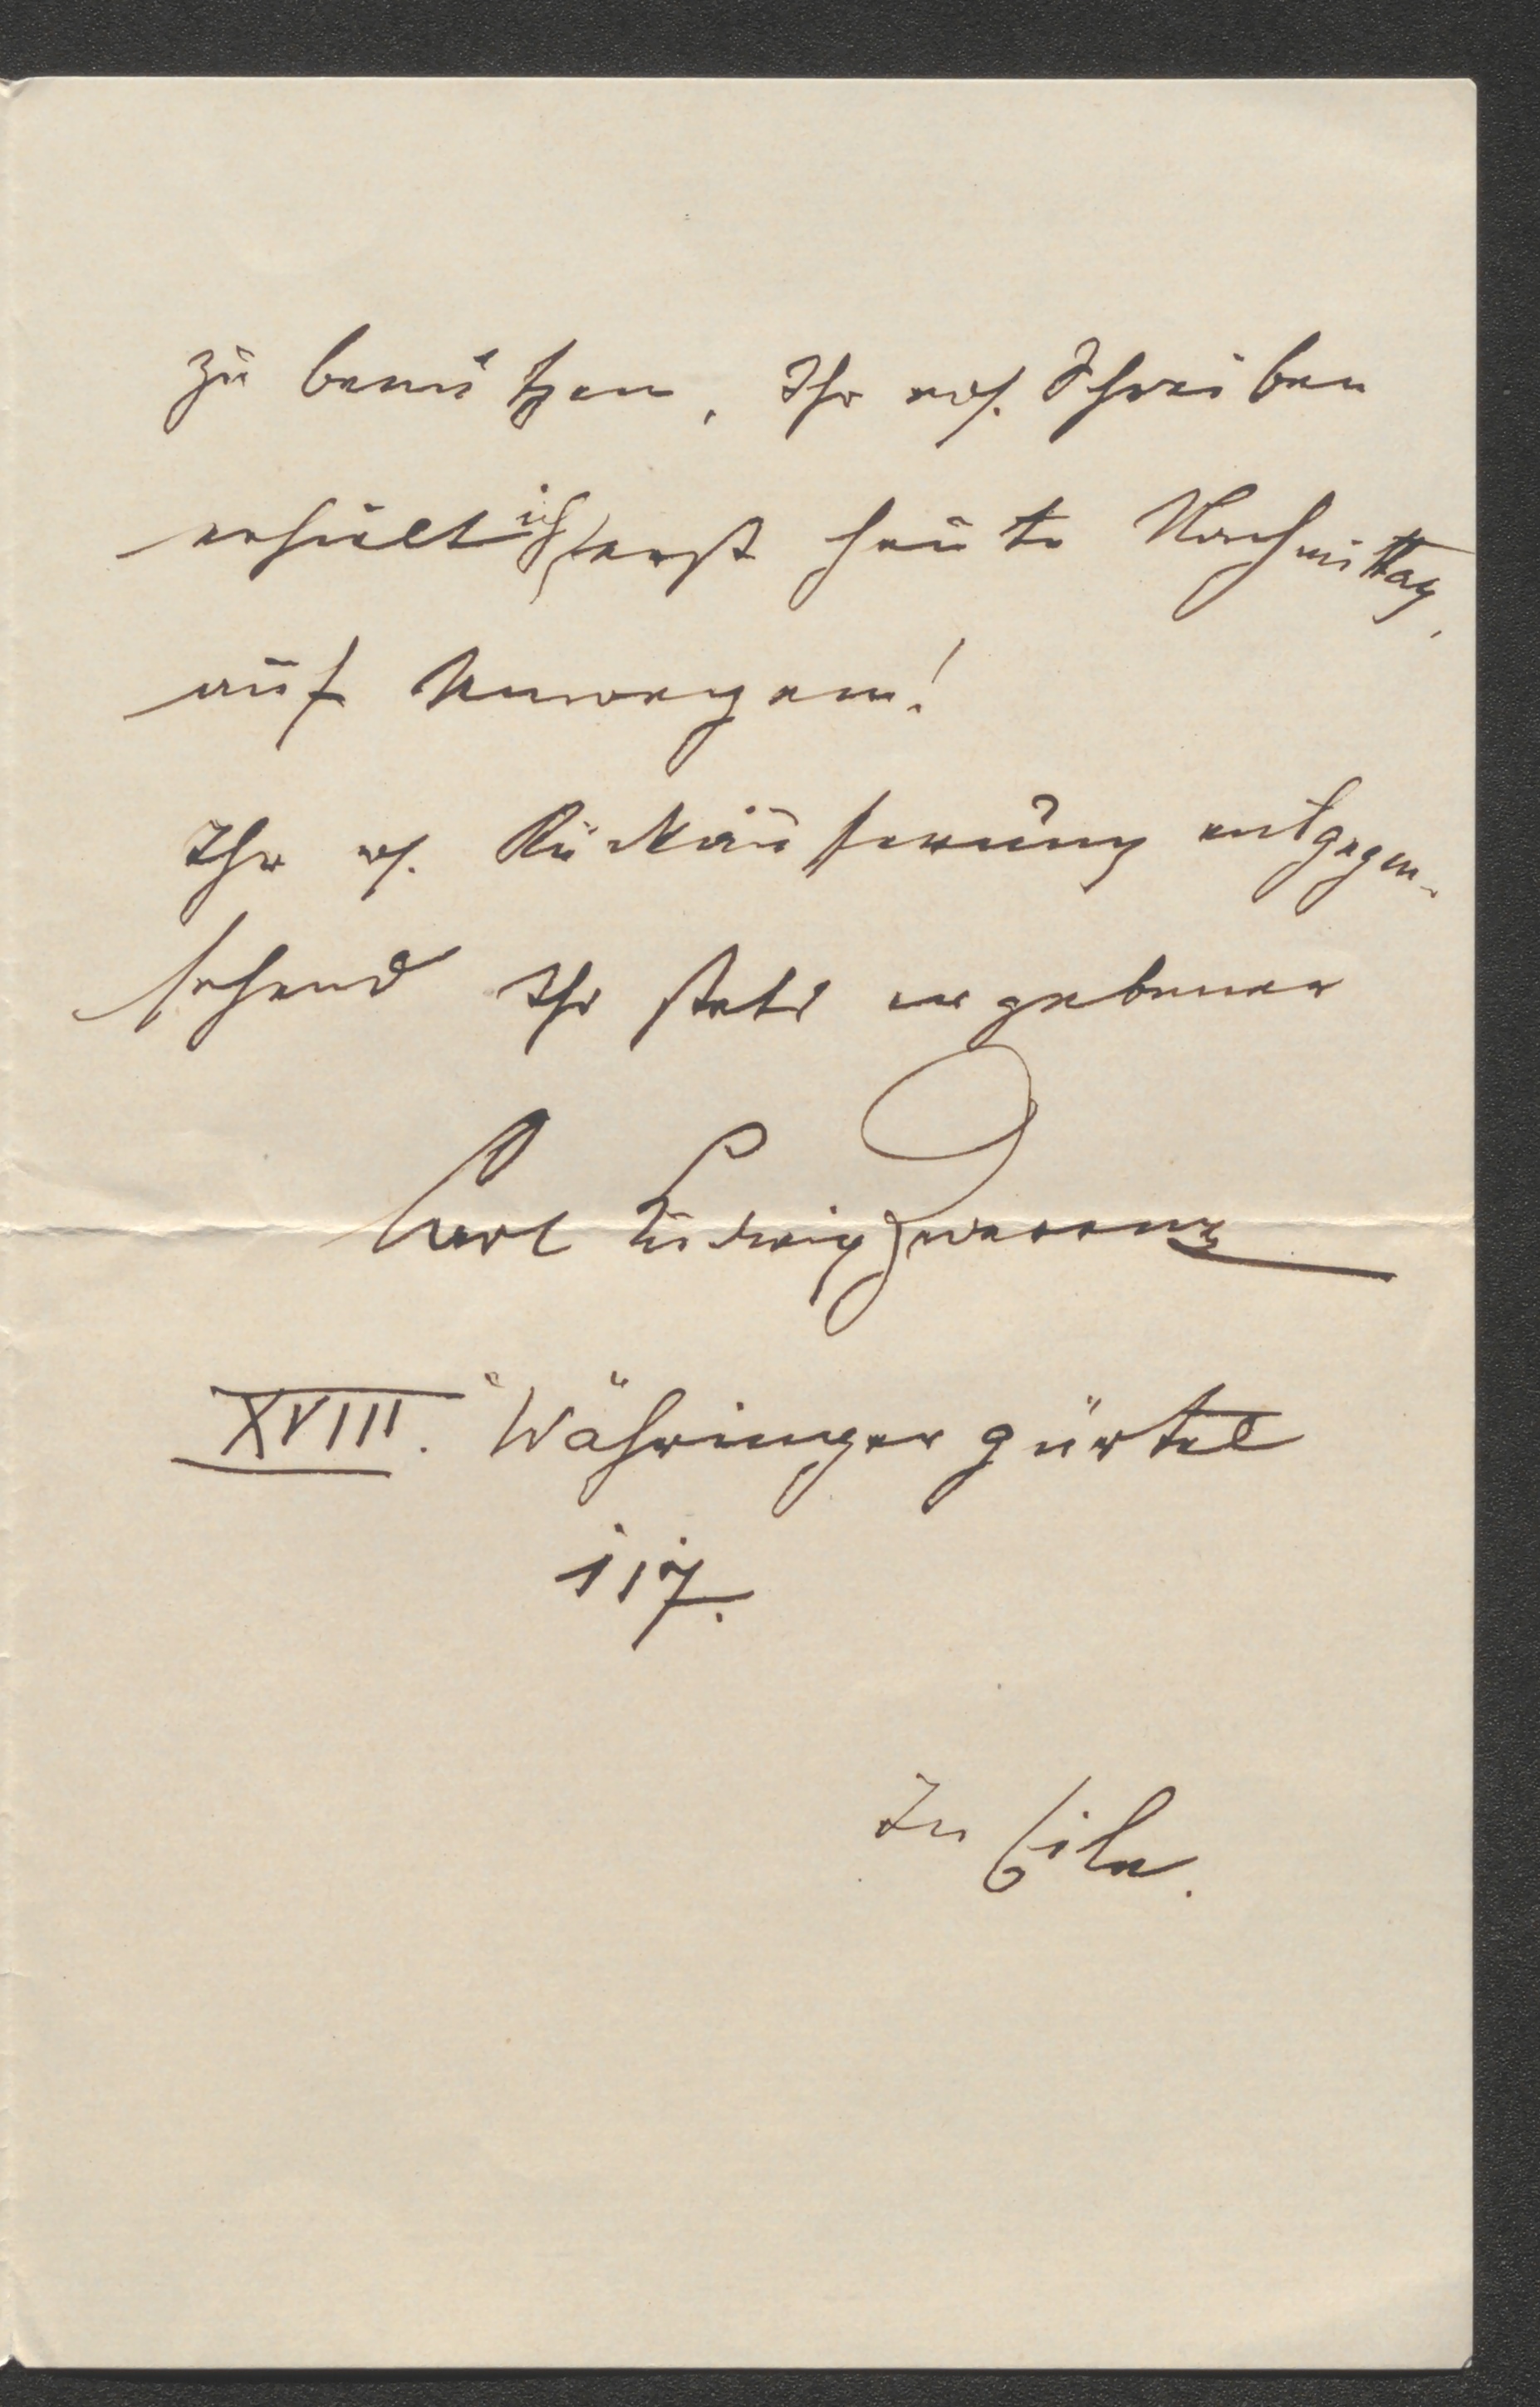 zu benützen. Ihr Schreiben
erhielt ich erst heute Nachmittag,
auf Umwegen!
Ihr Rückäußerung entgegen-
sehend Ihr stets ergebener
Carl Ludwig Zwerenz
XVIII. Währinger gürtel
117.
In Eile.